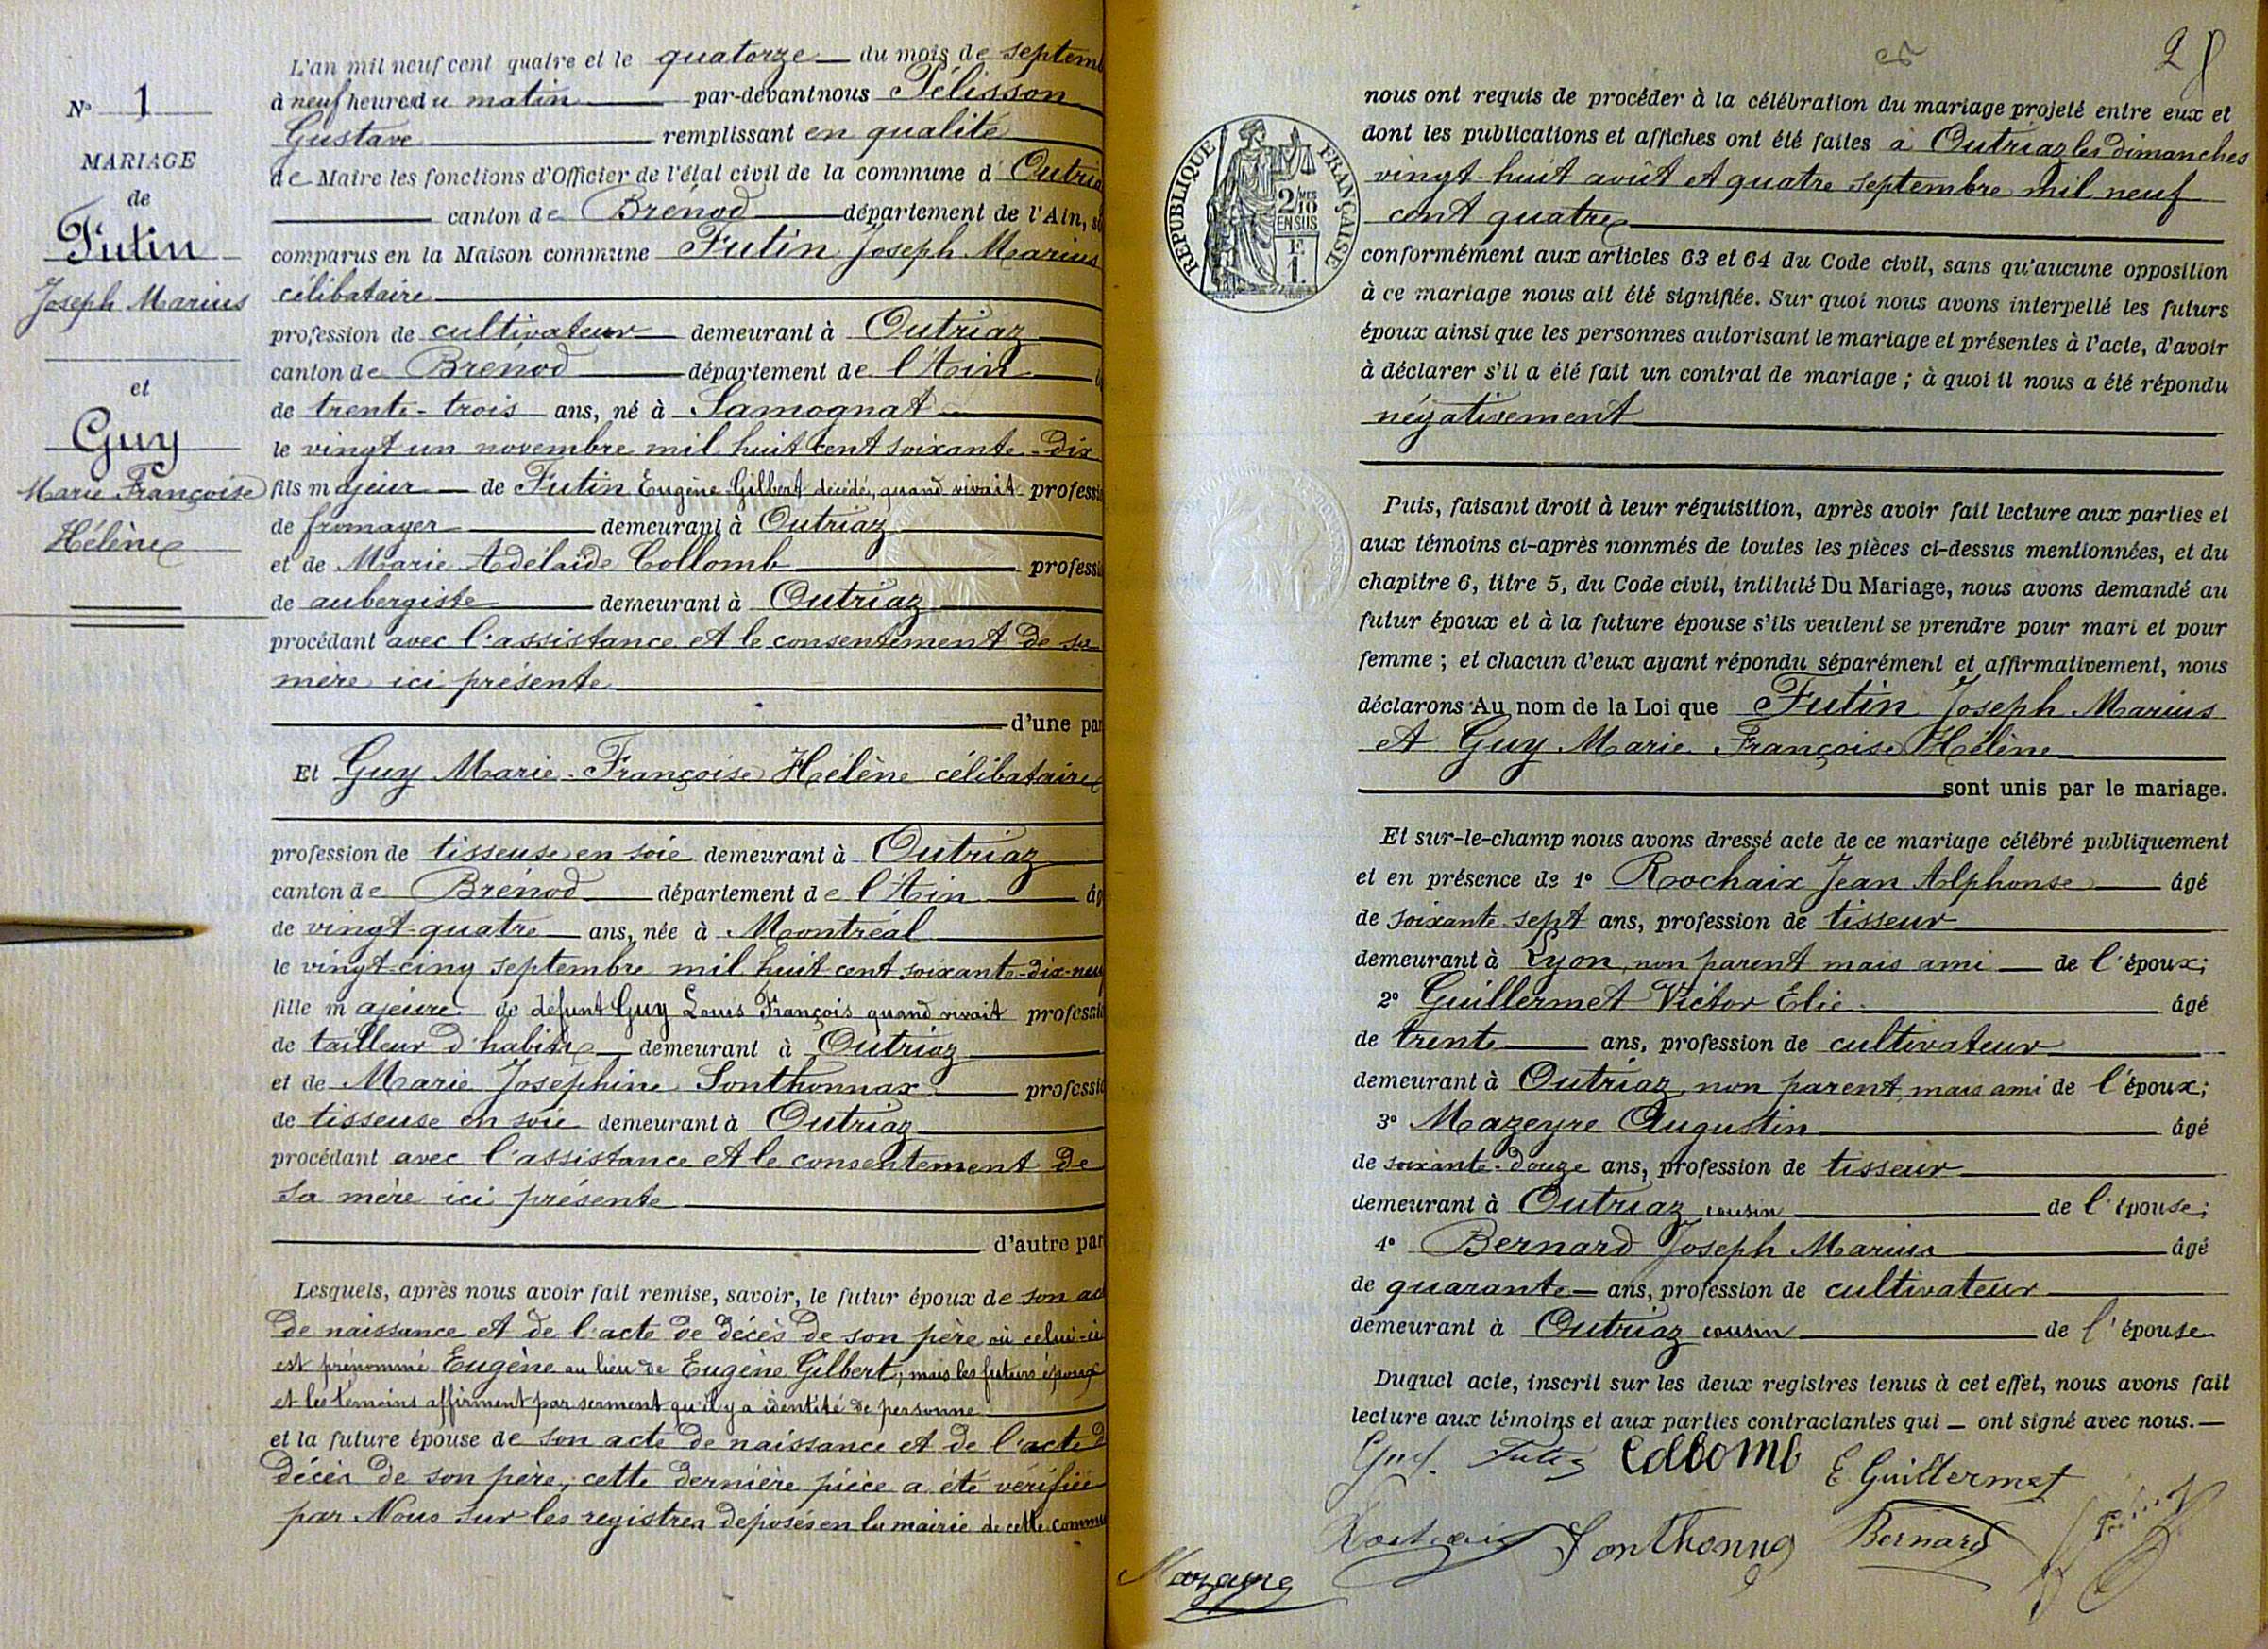 N° 1
MARIAGE
de
Futin
Joseph Marius
et
Guy
Marie Françoise
Hélène
L'an mil neuf cent quatre et le quatorze du mois de septem
à neuf heures du matin par-devant nous Pélisson
Gustave remplissant en qualité
de Maire les fonctions d'Officier de l'état civil de la commune d' Outria
canton de Brénod département de l'Ain, s
comparus en la Maison commune Futin Joseph Marius
célibataire
profession de cultivateur demeurant à Outriaz
canton de Brénod département de l'Ain
de trente-trois ans, né à Samognat
le vingt un novembre mil huit cent soixante-dix
fils majeur de Futin Eugène Gilbert décédé, quand vivait professi
de fromager demeurant à Outriaz
et de Marie Adélaïde Collomb professi
de aubergiste demeurant à Outriaz
procédant avec l'assistance et le consentement de sa
mère ici présente
d'une par
Et Guy Marie-Françoise Hélène célibataire
profession de tisseuse en soie demeurant à Outriaz
canton de Brénod département de l'Ain âg
de vingt-quatre ans, née à Montréal
le vingt-cinq septembre mil huit cent soixante-dix-neuf
fille majeure de défunt Guy Louis François quand vivait professio
de tailleur d'habits demeurant à Outriaz
et de Marie Josephine Sonthonnax professi
de tisseuse en soie demeurant à Outriaz
procédant avec l'assistance et le consentement de
sa mère ici présente
d'autre par
Lesquels, après nous avoir fait remise, savoir, le futur époux de son ac
de naissance et de l'acte de décès de son père où celui-ci
est prénommé Eugène au lieu de Eugène Gilbert; mais les futurs époux
et les témoins affirment par serment qu'il y a identité de personne
et la future épouse de son acte de naissance et de l'acte d
décès de son père; cette dernière pièce a été vérifiée
par Nous sur les registres déposés en la mairie de cette commu
2
RÉPUBLIQUE FRANÇAISE
2/10 MES
EN SUS
F
1.
nous ont requis de procéder à la célébration du mariage projeté entre eux et
dont les publications et affiches ont été faites à Outriaz les dimanches
vingt-huit août et quatre septembre mil neuf
cent quatre
conformément aux articles 63 et 64 du Code civil, sans qu'aucune opposition
à ce mariage nous ait été signifiée. Sur quoi nous avons interpellé les futurs
époux ainsi que les personnes autorisant le mariage et présentes à l'acte, d'avoir
à déclarer s'il a été fait un contrat de mariage ; à quoi il nous a été répondu
négativement
Puis, faisant droit à leur réquisition, après avoir fait lecture aux parties et
aux témoins ci-après nommés de toutes les pièces ci-dessus mentionnées, et du
chapitre 6, titre 5, du Code civil, intitulé Du Mariage, nous avons demandé au
futur époux et à la future épouse s'ils veulent se prendre pour mari et pour
femme ; et chacun d'eux ayant répondu séparément et affirmativement, nous
déclarons Au nom de la Loi que Futin Joseph Marius
et Guy Marie Françoise Hélène
sont unis par le mariage.
Et sur-le-champ nous avons dressé acte de ce mariage célébré publiquement
et en présence de 1° Rochaix Jean Alphonse âgé
de soixante-sept ans, profession de tisseur
demeurant à Lyon, non parent mais ami de l'époux;
2° Guillermet Victor Elie âgé
de trente ans, profession de cultivateur
demeurant à Outriaz, non parent, mais ami de l'époux;
3° Mazeyre Augustin âgé
de soixante-douze ans, profession de tisseur
demeurant à Outriaz cousin de l'épouse;
4° Bernard Joseph Marius âgé
de quarante ans, profession de cultivateur
demeurant à Outriaz cousin de l'épouse
Duquel acte, inscrit sur les deux registres tenus à cet effet, nous avons fait
lecture aux témoins et aux parties contractantes qui ont signé avec nous.
Guy Futin Collomb E. Guillermet
Rochaix Sonthonnax Bernard
Mazeyre